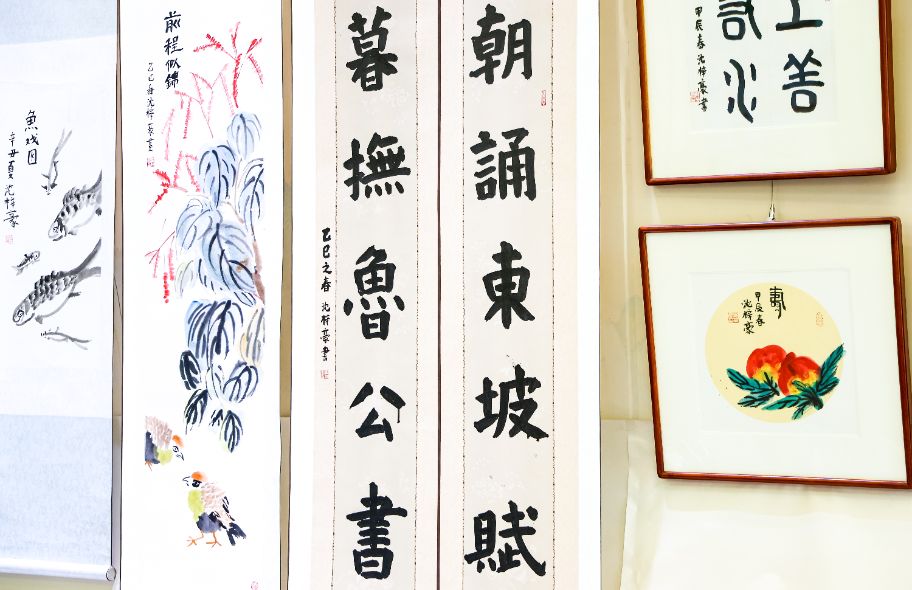 魚戏图
辛丑夏沈梓豪
前程似锦
乙巳春沈梓豪画
朝誦東坡賦
暮撫魯公書
乙巳之春沈梓豪書
上善
若水
甲辰春沈梓豪書
寿
甲辰春
沈梓豪